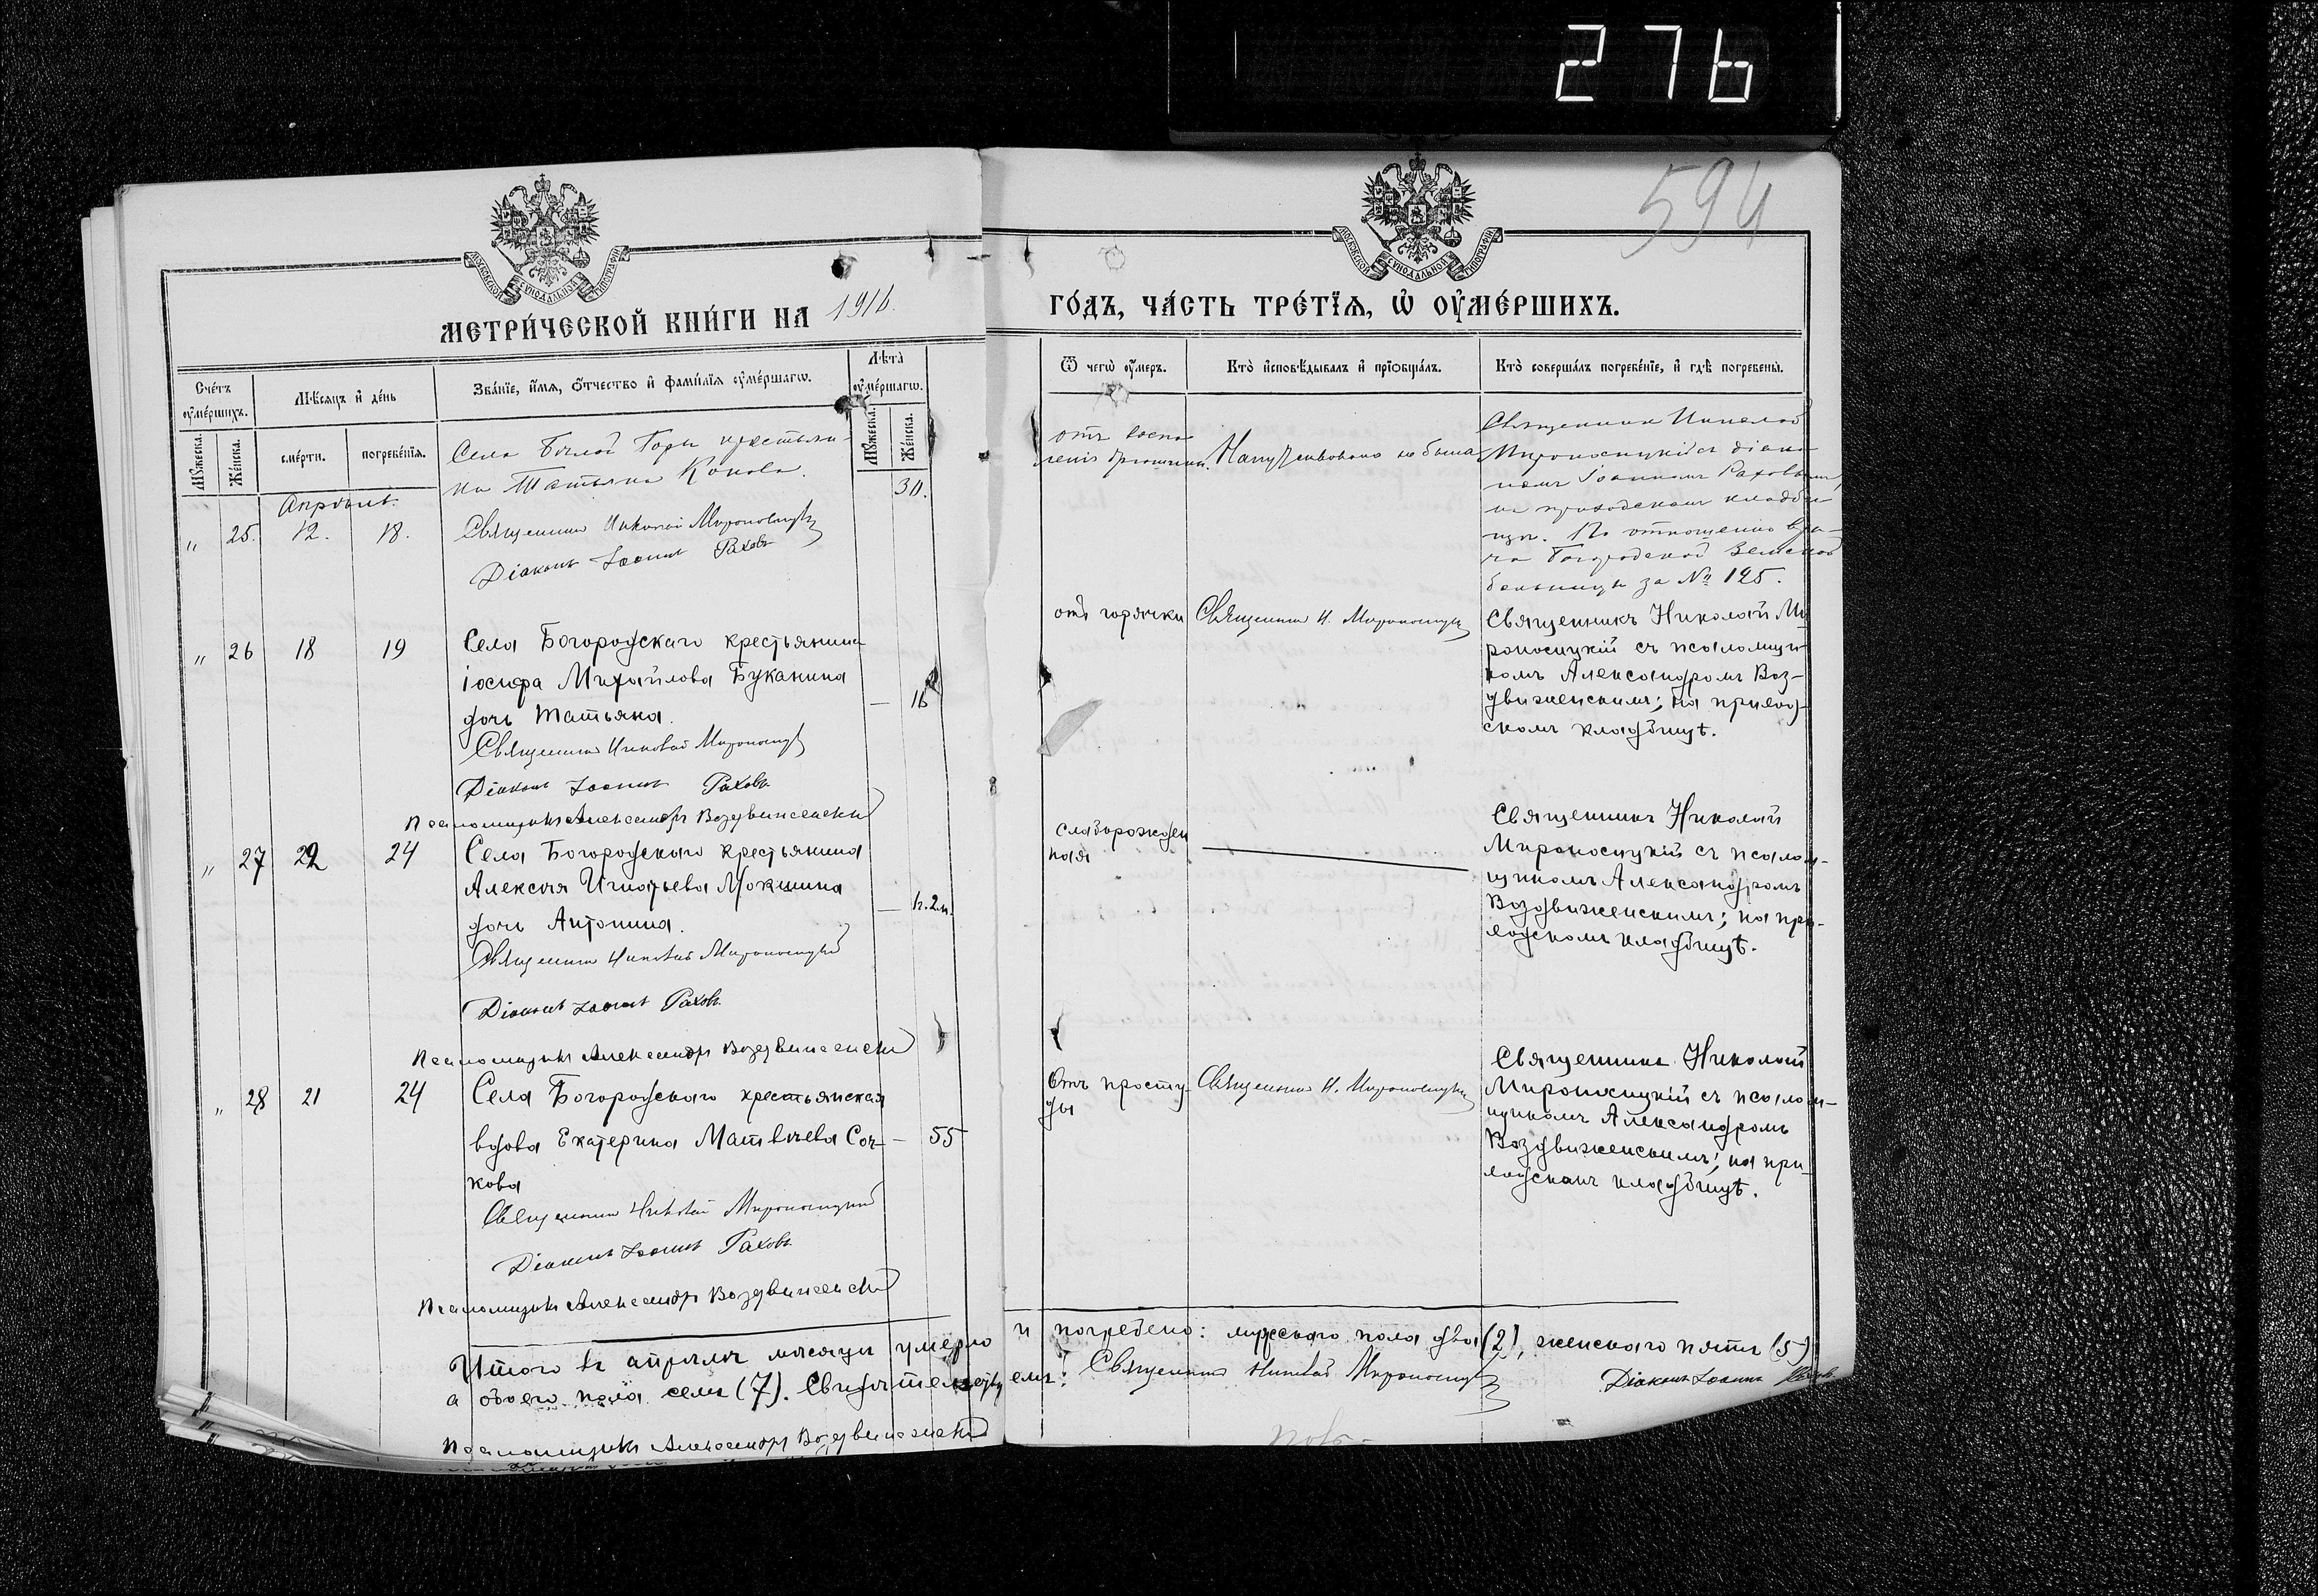 276
594
МОСКОВСКОЙ СѴНОДАЛЬНОЙ ТИПОГРАФІИ
МОСКОВСКОЙ СѴНОДАЛЬНОЙ ТИПОГРАФІИ
МЕТРИ́ЧЕСКОЙ КНИ́ГИ НА 1916.
ГО́ДЪ, ЧА́СТЬ ТРЕ́ТІѦ, Ѡ҆ ОУ҆МЕ́РШИХЪ.
Сче́тъ оумершихъ.
Мѣсяцъ и день
Званіе, имя, отчество и фамилія оумершаго.
Лѣта оумершаго.
Мужеска.
Женска.
смерти.
погребенія.
Мужеска.
Женска.
Ѿ чего оумеръ.
Кто исповѣдывалъ и пріобщалъ.
Кто совершалъ погребеніе, и гдѣ погребены.
Апрѣль.
„ 25. 12. 18.
Села Бѣлой Горы крестьян-
ка Татьяна Конова.
30.
Священникъ Николай Мироносицкій
Діаконъ Іоаннъ Раховъ
отъ воспа-
ленія брюшины.
Напутствована не была
Священникъ Николай
Мироносицкій съ діако-
номъ Іоанномъ Раховымъ,
на приходскомъ кладби-
щѣ. По отношенію вра-
ча Богородской Земской
больницы за № 125.
„ 26 18 19
Села Богородскаго крестьянина
Іосифа Михайлова Буканина
дочь Татьяна.
— 16
Священникъ Николай Мироносицкій
Діаконъ Іоаннъ Раховъ
Псаломщикъ Александръ Воздвиженскій
отъ горячки
Священникъ Н. Мироносицкій
Священникъ Николай Ми-
роносицкій съ псаломщи-
комъ Александромъ Воз-
движенскимъ; на приход-
скомъ кладбищѣ.
„ 27 22 24
Села Богородскаго крестьянина
Алексѣя Игнатьева Мокшина
дочь Антонина.
Священникъ Николай Мироносицкій
Діаконъ Іоаннъ Раховъ
Псаломщикъ Александръ Воздвиженскій
слаборожден
ная
Священникъ Николай
Мироносицкій съ псалом-
щикомъ Александромъ
Воздвиженскимъ; на при-
ходскомъ кладбищѣ.
„ 28 21 24
Села Богородскаго крестьянская
вдова Екатерина Матвѣева Соч-
кова
— 55
Священникъ Николай Мироносицкій
Діаконъ Іоаннъ Раховъ
Псаломщикъ Александръ Воздвиженскій
Отъ просту-
ды
Священникъ Н. Мироносицкій
Священникъ Николай
Мироносицкій съ псалом-
щикомъ Александромъ
Воздвиженскимъ; на при-
ходскомъ кладбищѣ.
Итого въ апрѣлѣ мѣсяцѣ умерло и погребено: мужескаго пола два (2), женскаго пять (5)
а обоего пола семь (7). Свидѣтельствуемъ: Священникъ Николай Мироносицкій
Діаконъ Іоаннъ Раховъ
Псаломщикъ Александръ Воздвиженскій